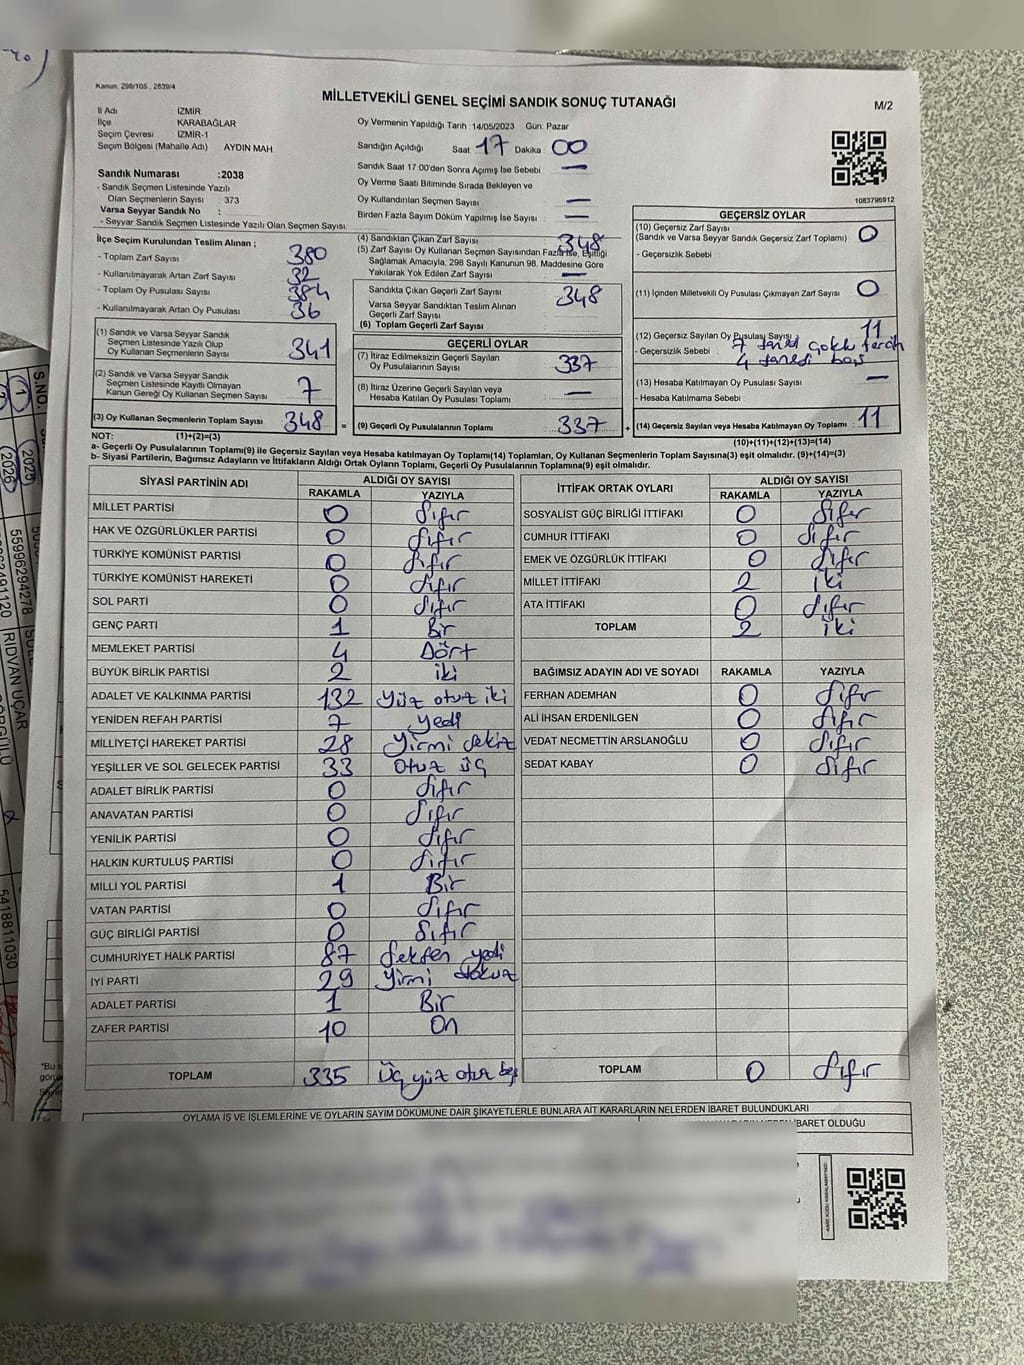 Kanun. 298/105 , 2839/4
MİLLETVEKİLİ GENEL SEÇİMİ SANDIK SONUÇ TUTANAĞI
M/2
İl Adı İZMİR
İlçe KARABAĞLAR
Seçim Çevresi İZMİR-1
Seçim Bölgesi (Mahalle Adı) AYDIN MAH
Oy Vermenin Yapıldığı Tarih :14/05/2023 Gün: Pazar
Sandığın Açıldığı Saat 17 Dakika 00
Sandık Saat 17:00'den Sonra Açımış İse Sebebi —
Oy Verme Saati Bitiminde Sırada Bekleyen ve
Oy Kullandırılan Seçmen Sayısı —
Birden Fazla Sayım Döküm Yapılmış İse Sayısı —
Sandık Numarası :2038
- Sandık Seçmen Listesinde Yazılı
Olan Seçmenlerin Sayısı : 373
Varsa Seyyar Sandık No :
- Seyyar Sandık Seçmen Listesinde Yazılı Olan Seçmen Sayısı:
1083796912
İlçe Seçim Kurulundan Teslim Alınan ;
- Toplam Zarf Sayısı 380
- Kullanılmayarak Artan Zarf Sayısı 32
- Toplam Oy Pusulası Sayısı 384
- Kullanılmayarak Artan Oy Pusulası 36
(1) Sandık ve Varsa Seyyar Sandık
Seçmen Listesinde Yazılı Olup
Oy Kullanan Seçmenlerin Sayısı 341
(2) Sandık ve Varsa Seyyar Sandık
Seçmen Listesinde Kayıtlı Olmayan
Kanun Gereği Oy Kullanan Seçmen Sayısı 7
(3) Oy Kullanan Seçmenlerin Toplam Sayısı 348
(4) Sandıktan Çıkan Zarf Sayısı 348
(5) Zarf Sayısı Oy Kullanan Seçmen Sayısından Fazla İse, Eşitliği
Sağlamak Amacıyla, 298 Sayılı Kanunun 98. Maddesine Göre
Yakılarak Yok Edilen Zarf Sayısı —
Sandıkta Çıkan Geçerli Zarf Sayısı 348
Varsa Seyyar Sandıktan Teslim Alınan
Geçerli Zarf Sayısı
(6) Toplam Geçerli Zarf Sayısı
GEÇERLİ OYLAR
(7) İtiraz Edilmeksizin Geçerli Sayılan
Oy Pusulalarının Sayısı 337
(8) İtiraz Üzerine Geçerli Sayılan veya
Hesaba Katılan Oy Pusulası Toplamı —
= (9) Geçerli Oy Pusulalarının Toplamı 337 +
GEÇERSİZ OYLAR
(10) Geçersiz Zarf Sayısı
(Sandık ve Varsa Seyyar Sandık Geçersiz Zarf Toplamı) 0
- Geçersizlik Sebebi
(11) İçinden Milletvekili Oy Pusulası Çıkmayan Zarf Sayısı 0
(12) Geçersiz Sayılan Oy Pusulası Sayısı 11
- Geçersizlik Sebebi 7 tanesi çoklu tercih
4 tanesi boş
(13) Hesaba Katılmayan Oy Pusulası Sayısı —
- Hesaba Katılmama Sebebi
(14) Geçersiz Sayılan veya Hesaba Katılmayan Oy Toplamı 11
NOT: (1)+(2)=(3)
(10)+(11)+(12)+(13)=(14)
a- Geçerli Oy Pusulaları Toplamı(9) ile Geçersiz Sayılan veya Hesaba katılmayan Oy Toplamı(14) Toplamları, Oy Kullanan Seçmenlerin Toplam Sayısına(3) eşit olmalıdır. (9)+(14)=(3)
b- Siyasi Partilerin, Bağımsız Adayların ve İttifakların Aldığı Ortak Oyların Toplamı, Geçerli Oy Pusulalarının Toplamına(9) eşit olmalıdır.
SİYASİ PARTİNİN ADI ALDIĞI OY SAYISI
RAKAMLA YAZIYLA
MİLLET PARTİSİ 0 Sıfır
HAK VE ÖZGÜRLÜKLER PARTİSİ 0 Sıfır
TÜRKİYE KOMÜNİST PARTİSİ 0 Sıfır
TÜRKİYE KOMÜNİST HAREKETİ 0 Sıfır
SOL PARTİ 0 Sıfır
GENÇ PARTİ 1 Bir
MEMLEKET PARTİSİ 4 Dört
BÜYÜK BİRLİK PARTİSİ 2 iki
ADALET VE KALKINMA PARTİSİ 132 Yüz otuz iki
YENİDEN REFAH PARTİSİ 7 yedi
MİLLİYETÇİ HAREKET PARTİSİ 28 Yirmi sekiz
YEŞİLLER VE SOL GELECEK PARTİSİ 33 Otuz üç
ADALET BİRLİK PARTİSİ 0 Sıfır
ANAVATAN PARTİSİ 0 Sıfır
YENİLİK PARTİSİ 0 Sıfır
HALKIN KURTULUŞ PARTİSİ 0 Sıfır
MİLLİ YOL PARTİSİ 1 Bir
VATAN PARTİSİ 0 Sıfır
GÜÇ BİRLİĞİ PARTİSİ 0 Sıfır
CUMHURİYET HALK PARTİSİ 87 Seksen yedi
İYİ PARTİ 29 Yirmi dokuz
ADALET PARTİSİ 1 Bir
ZAFER PARTİSİ 10 On
TOPLAM 335 Üç yüz otuz beş
İTTİFAK ORTAK OYLARI ALDIĞI OY SAYISI
RAKAMLA YAZIYLA
SOSYALİST GÜÇ BİRLİĞİ İTTİFAKI 0 Sıfır
CUMHUR İTTİFAKI 0 Sıfır
EMEK VE ÖZGÜRLÜK İTTİFAKI 0 Sıfır
MİLLET İTTİFAKI 2 iki
ATA İTTİFAKI 0 Sıfır
TOPLAM 2 iki
BAĞIMSIZ ADAYIN ADI VE SOYADI RAKAMLA YAZIYLA
FERHAN ADEMHAN 0 Sıfır
ALİ İHSAN ERDENİLGEN 0 Sıfır
VEDAT NECMETTİN ARSLANOĞLU 0 Sıfır
SEDAT KABAY 0 Sıfır
TOPLAM 0 Sıfır
OYLAMA İŞ VE İŞLEMLERİNE VE OYLARIN SAYIM DÖKÜMÜNE DAİR ŞİKAYETLERLE BUNLARA AİT KARARLARIN NELERDEN İBARET BULUNDUKLARI
BARET OLDUĞU
S.NO.
1
(2025)
(2026)
55996294278
RIDVAN UÇAR
5418811030